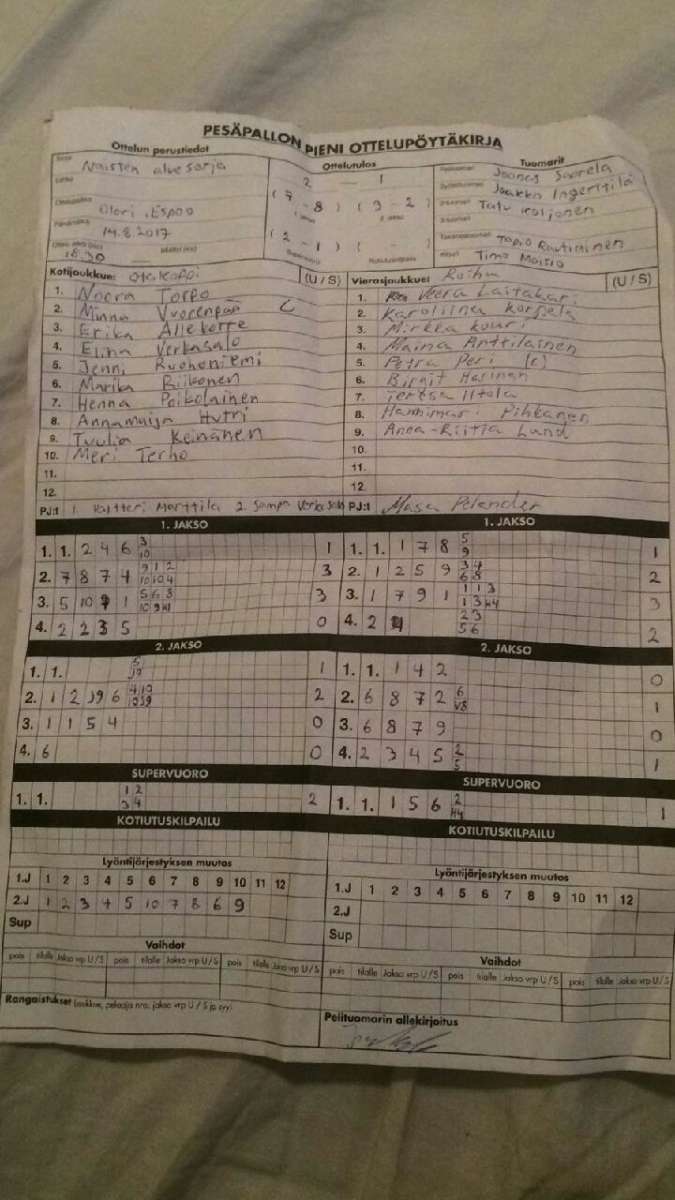 PESÄPALLON PIENI OTTELUPÖYTÄKIRJA
Ottelun perustiedot Ottelutulos Tuomarit
Naisten aluesarja 2 — 1 Joones Saarela
(7 - 8) (3 - 2) Jaakko
Olari, Espoo Tatu
14.8.2017 (2 - 1) ( - ) Tapio Rautiainen
18.30 Timo Moisio
Kotijoukkue: (U / S) Vierasjoukkue: Roihu (U / S)
1. Noora Torpo 1. Veera Laitakari
2. Minna Vuorenpää C 2. Karoliina Korpela
3. Erika 3. Mirkka Kuuri
4. Elina Verkasalo 4. Maina Anttilainen
5. Jenni Ruohoniemi 5. Petra Peri (c)
6. Marika Riikonen 6. Birgit
7. Henna Poikolainen 7. Teresa
8. Annamaija Hutri 8. Hannimari Pihkanen
9. Tuulia Keinänen 9. Anna-Riitta Lund
10. Meri Terho 10.
11. 11.
12. 12.
PJ:t 1. Marttila 2. Sampo Verkasalo PJ:t Masa Pelander
1. JAKSO 1. JAKSO
1. 1. 2 4 6 3 10 1 1. 1. 1 7 8 5 9 1
2. 7 8 7 4 9 1 2 10 10 4 3 2. 1 2 5 9 3 4 6 8 2
3. 5 10 9 1 5 6 8 3 3. 1 7 9 1 1 1 3 3
4. 2 2 3 5 0 4. 2 4 2 3 5 6 2
2. JAKSO 2. JAKSO
1. 1. 1 1. 1. 1 4 2 0
2. 1 2 6 2 2. 6 8 7 2 6 1
3. 1 1 5 4 0 3. 6 8 7 9 0
4. 6 0 4. 2 3 4 5 2 5 1
SUPERVUORO SUPERVUORO
1. 1. 1 2 3 4 2 1. 1. 1 5 6 2 1
KOTIUTUSKILPAILU KOTIUTUSKILPAILU
Lyöntijärjestyksen muutos Lyöntijärjestyksen muutos
1.J 1 2 3 4 5 6 7 8 9 10 11 12 1.J 1 2 3 4 5 6 7 8 9 10 11 12
2.J 1 2 3 4 5 10 7 8 6 9 2.J
Sup Sup
Vaihdot Vaihdot
pois tilalle Jakso vrp U / S pois tilalle Jakso vrp U / S pois tilalle Jakso vrp U / S pois tilalle Jakso vrp U / S pois tilalle Jakso vrp U / S pois tilalle Jakso vrp U / S
Rangaistukset (joukkue, pelaaja nro, jakso vrp U / S ja syy)
Pelituomarin allekirjoitus